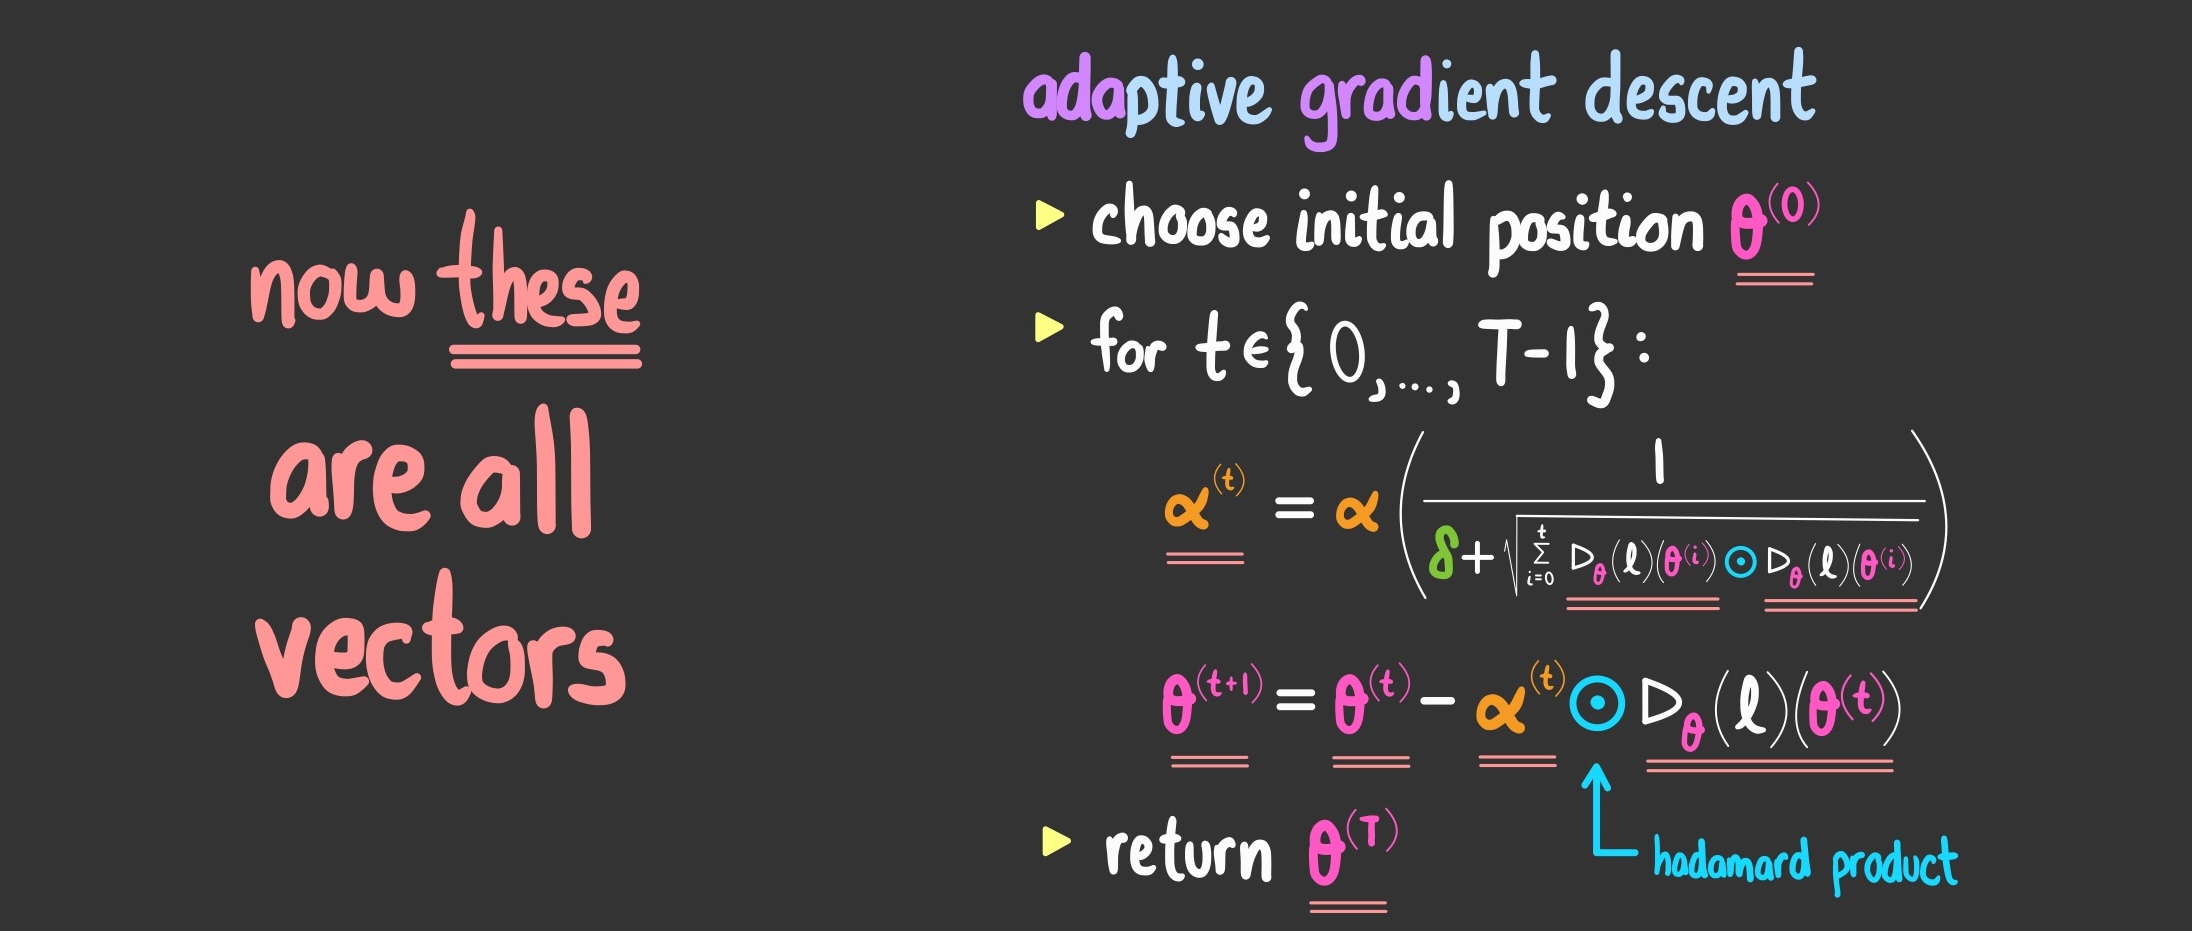 now these
are all
vectors
adaptive gradient descent
▶ choose initial position θ^(0)
▶ for t ∈ {0, ..., T-1} :
α^(t) = α (1 / (δ + √(∑_{i=0}^{t} D_θ(ℓ)(θ^(i)) ⊙ D_θ(ℓ)(θ^(i)))))
θ^(t+1) = θ^(t) - α^(t) ⊙ D_θ(ℓ)(θ^(t))
▶ return θ^(T)
hadamard product